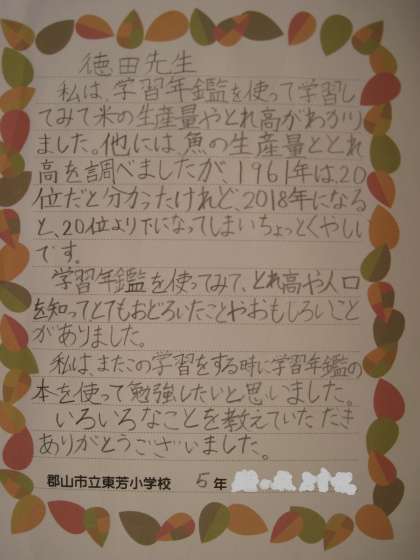 徳田先生
私は、学習年鑑を使って学習し
てみて米の生産量やとれ高がわかり
ました。他には魚の生産量ととれ
高を調べましたが、1961年は、20
位だと分かったけれど、2018年になる
と、20位より下になってしまいちょっとくやしい
です。
学習年鑑を使ってみて、とれ高や人口
を知ってとてもおどろいたことやおもしろいこと
がありました。
私は、またこの学習をする時に学習年鑑の
本を使って勉強したいと思いました。
いろいろなことを教えていただき
ありがとうございました。
郡山市立東芳小学校 5年